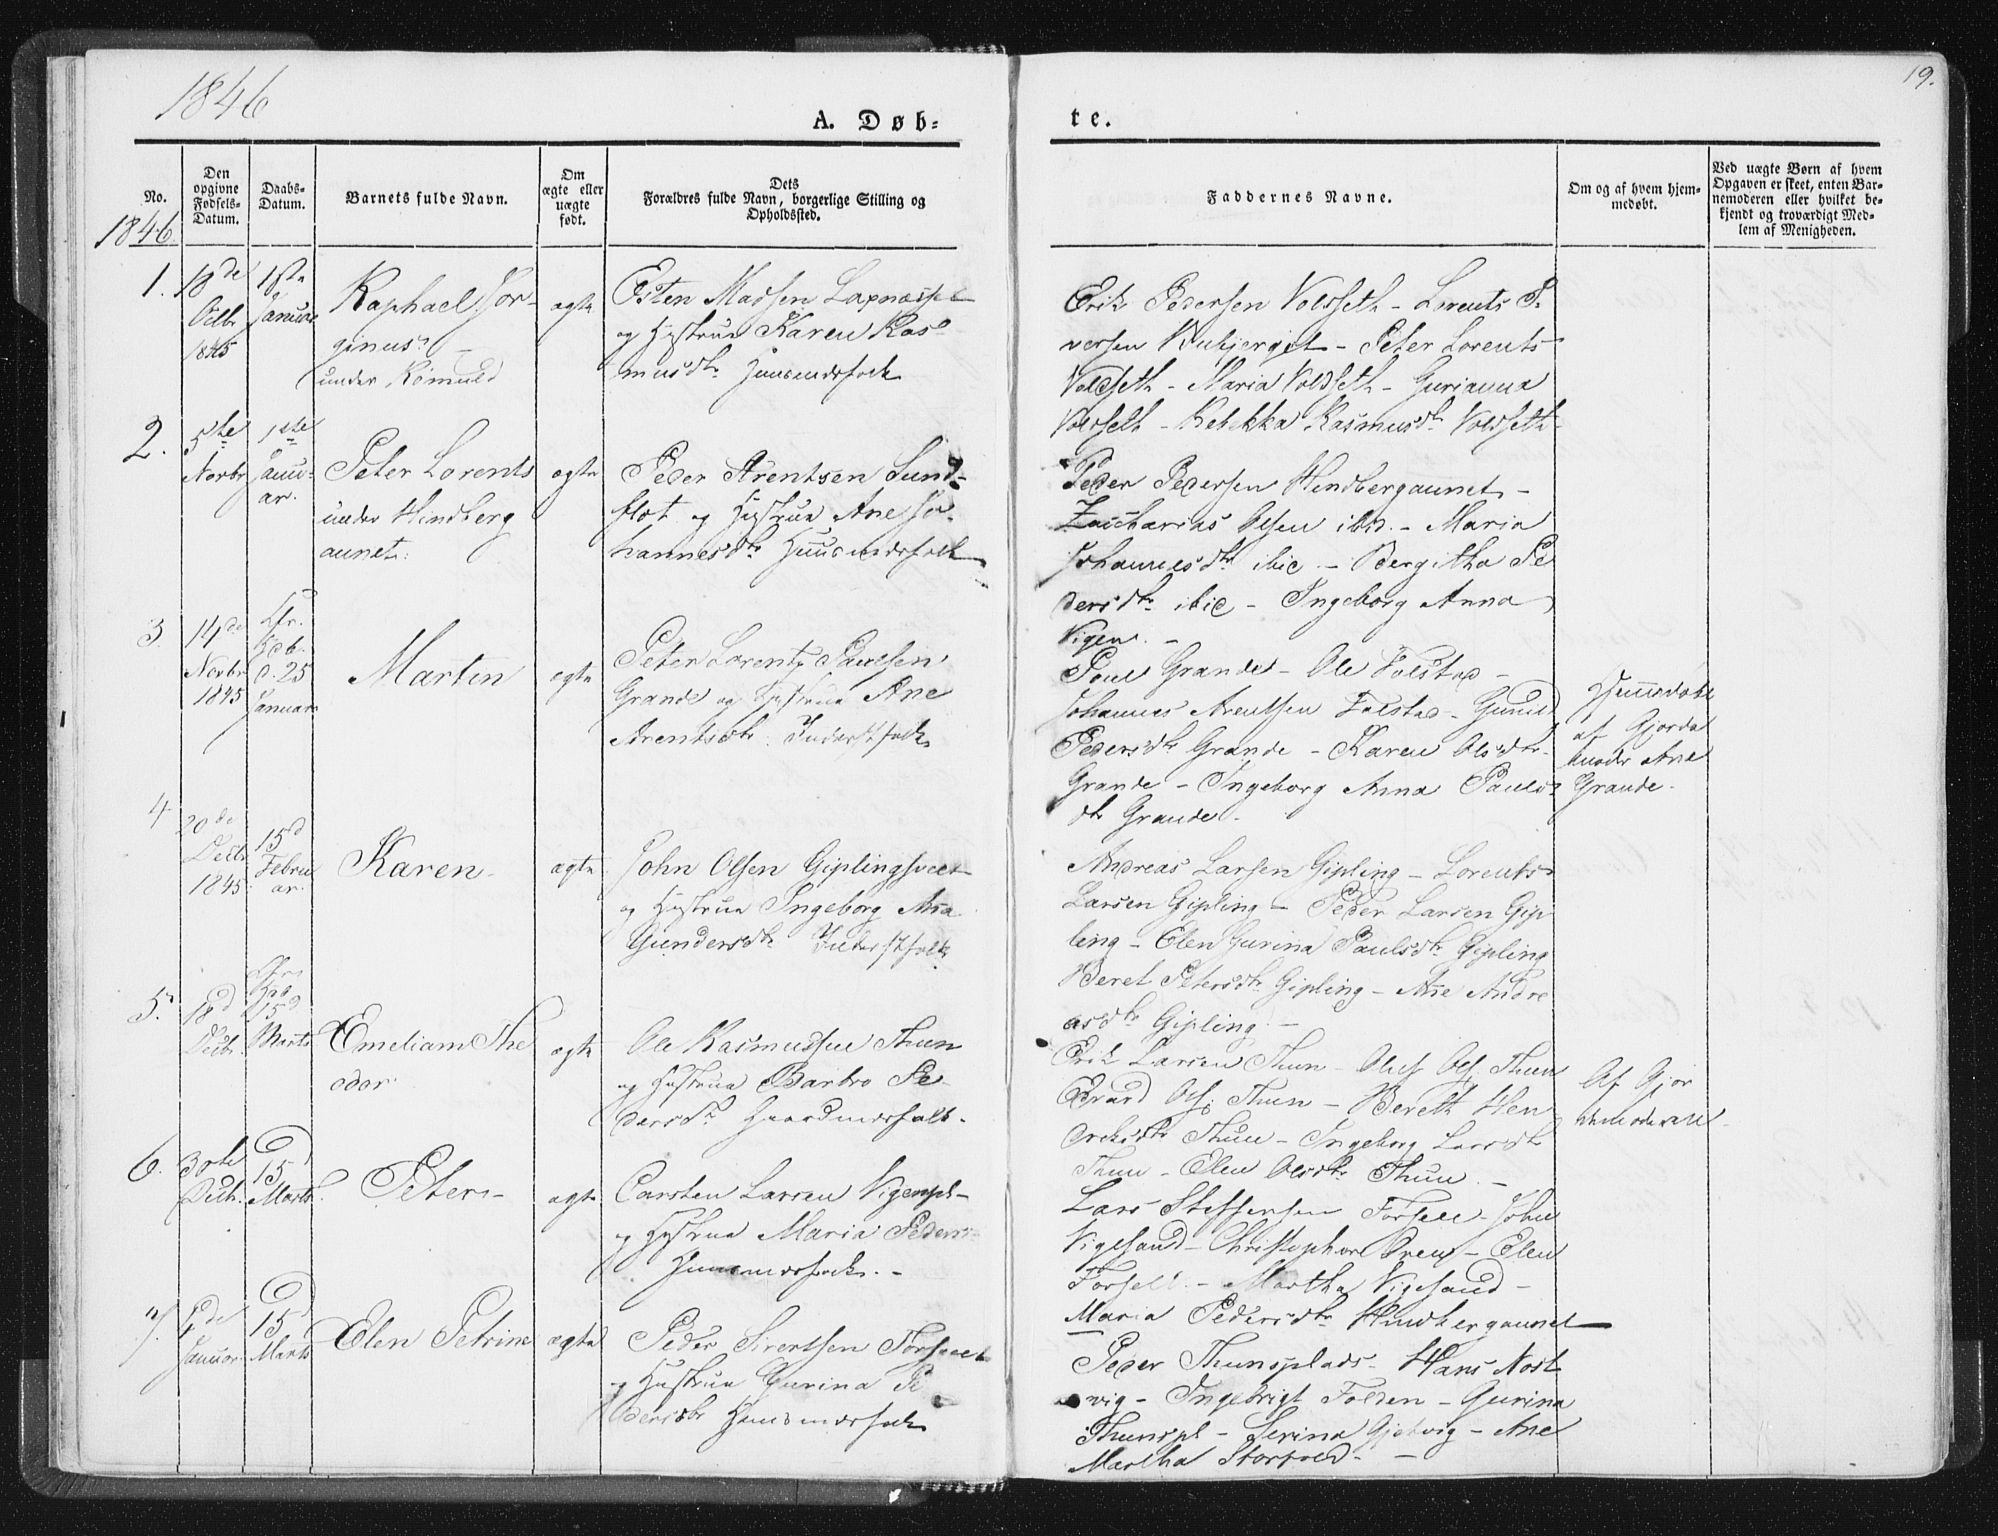 1846
19.
A. Døb=
te.
No.
Den opgivne Fødsels-Datum.
Daabs-Datum.
Barnets fulde Navn.
Om ægte eller uægte født.
Dets Forældres fulde Navn, borgerlige Stilling og Opholdssted.
Faddernes Navne.
Om og af hvem hjemmedøbt.
Ved uægte Børn af hvem Opgaven er skeet, enten Barnemoderen eller hvilket bekjendt og troværdigt Medlem af Menigheden.
1846.
1.
18de
Octbr
1845
1ste
Januar
Raphael Jør-
ginus
under Rømuld
ægte
Esten Madsen
og Hustrue Karen Ras-
musdtr Huusmdsfolk
Erik Pedersen Voldseth - Lorents I-
versen - Peter Lorents
Voldseth - Maria Voldseth - Gurianna
Voldseth - Rebekka Rasmusdtr Voldseth
2.
5te
Novbr
1ste
Janu-
ar.
Peter Lorents
under Hindberg
aunet.
ægte
Peder Arentsen Sund-
flot og Hustrue Ane Jo-
hannesdtr Huusmdsfolk
Peder Pedersen Hindbergaunet -
Zacharias Olsen ibid. - Maria
Johannesdtr ibid - Bergitha Pe
dersdtr ibid - Ingeborg Anna
Vigen. -
3
14de
Novbr
1845
25
Januar
Martin
ægte
Peter Lorentz Paulsen
Grande og Hustrue Ane
Arentsdtr Inderstfolk
Paul Grande - Ole Folstad -
Johannes Arentsen Folstad - Gunild
Pedersdtr Grande - Karen Olsdtr
Grande - Ingeborg Anna Pauls
dtr Grande -
Hjemmedøbt
af Gjorde
moder Ane
Grande.
4
20de
Decbr
1845
15d
Febru
ar.
Karen
ægte
John Olsen Giplingsveet
og Hustrue Ingeborg Ana
Gundersdtr Inderstfolk
Andreas Larsen Gipling - Lorents
Larsen Gipling - Peder Larsen Gip
ling - Elen Gurina Paulsdtr Gipling
Beret Petersdtr Gipling - Ane Andre
asdtr Gipling. -
5.
18d
Decbr.
15d
Marts
Emeliam The
odor
ægte
Ole Rasmussen Thun
og Hustrue Barbro Pe-
dersdtr Gaardmdsfolk.
Erik Larsen Thun - Oluf Ols. Thun
Ols. Thun - Bereth Hen
driksdtr Thun - Ingeborg Larsdtr
Thun - Elen Olsdtr Thun. -
Af Gjor
demoderen
6.
30te
Decbr.
15d
Marts
Peter -
ægte
Carsten Larsen Vigenpl-
og Hustrue Maria Peders
Huusmdsfolk. -
Lars Steffensen Forsell - John
Vigesand - Christopher - Elen
Forsell. - Martha Vigesand -
Maria Pedersdtr Hindbergaunet
7.
2de
Januar
15d
Marts
Elen Petrine
ægte
Peder Sivertsen
og Hustrue Gurina Pe
dersdtr Huusmdsfolk
Peder Thunsplads - Hans Nost
vig - Ingebrigt Folden - Gurina
Thunspl - Serina Gjetvig - Ane
Martha -